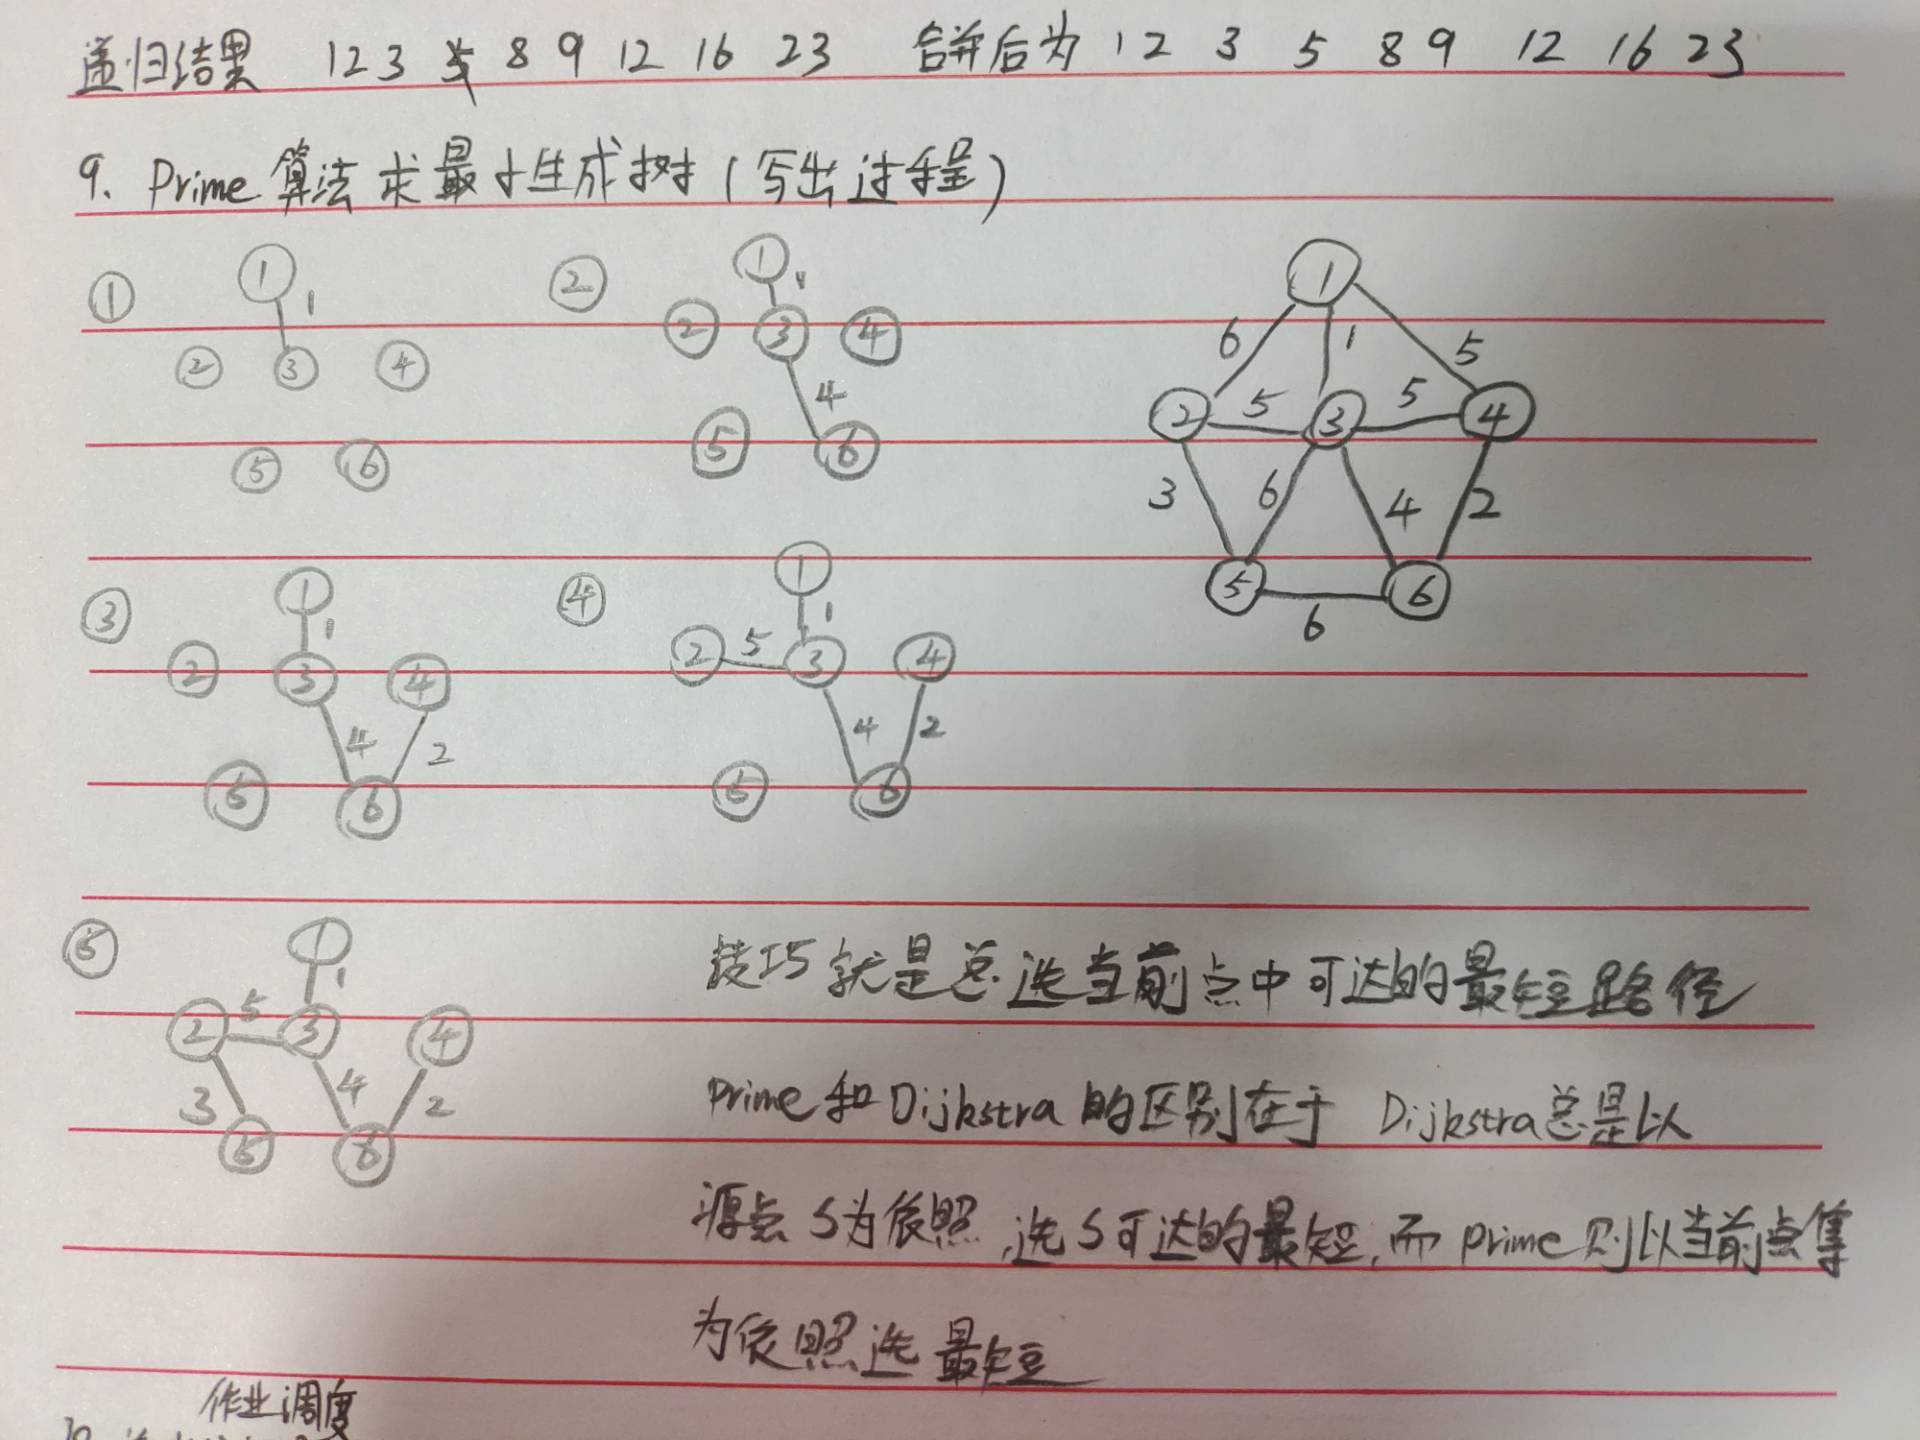 递归结果 1 2 3 5 8 9 12 16 23 合并后为 1 2 3 5 8 9 12 16 23
9. Prime 算法求最小生成树(写出过程)
① 1 1 2 3 4 5 6
② 1 1 2 3 4 4 5 6
1 6 1 5 2 5 3 5 4 3 6 4 2 5 6 6
③ 1 1 2 3 4 4 2 5 6
④ 1 1 2 5 3 4 4 2 5 6
⑤ 1 1 2 5 3 4 3 4 2 5 6
技巧就是总选当前点中可达的最短路径
Prime 和 Dijkstra 的区别在于 Dijkstra总是以
源点 S为依照,选 S可达的最短,而 prime 则以当前点集
为依照选最短
作业调度